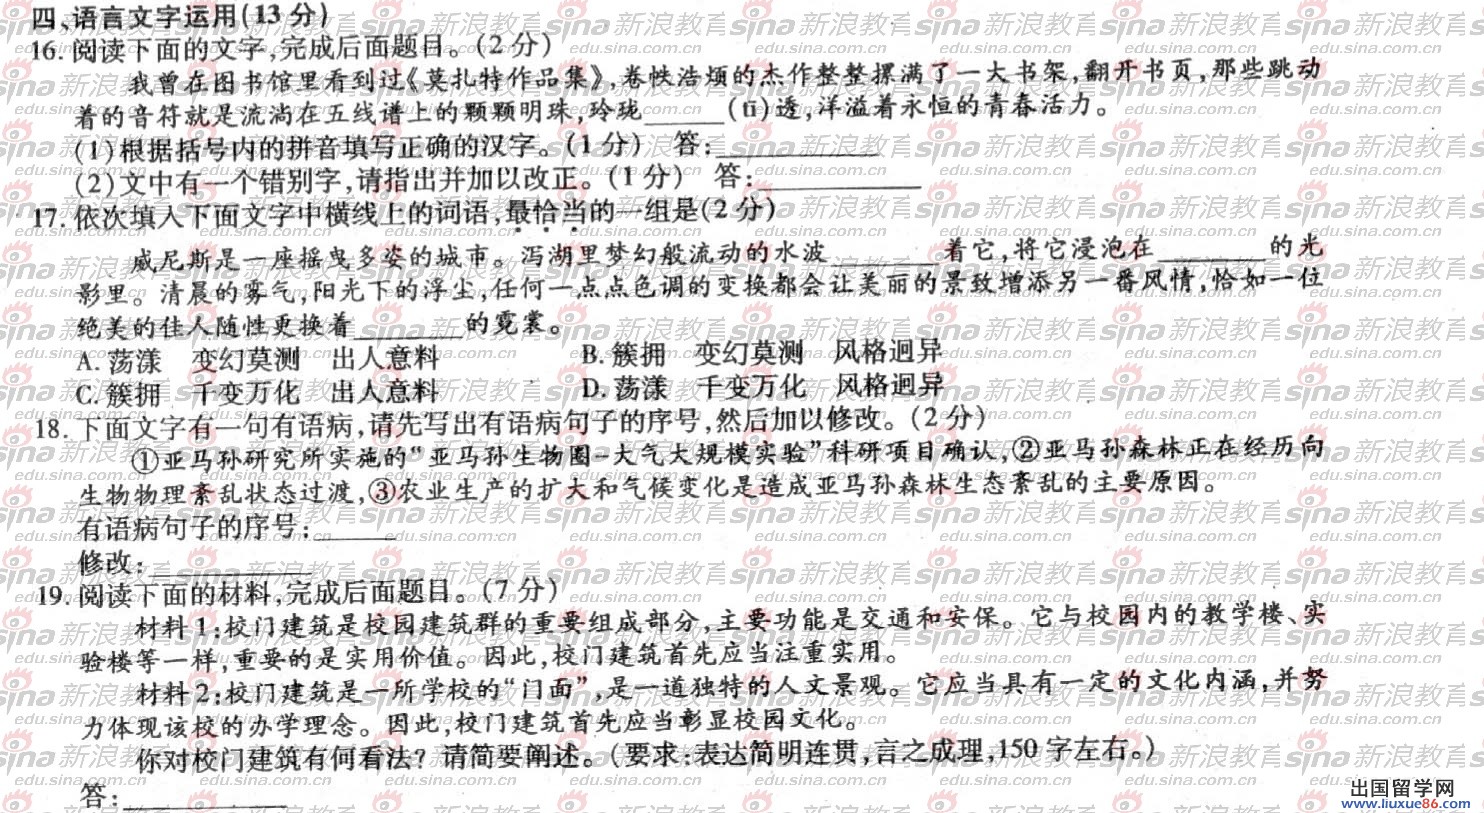 四、语言文字运用(13分)
16.阅读下面的文字,完成后面题目。(2分)
我曾在图书馆里看到过《莫扎特作品集》,卷帙浩烦的杰作整整摞满了一大书架,翻开书页,那些跳动
着的音符就是流淌在五线谱上的颗颗明珠,玲珑______(tī)透,洋溢着永恒的青春活力。
(1)根据括号内的拼音填写正确的汉字。(1分) 答:____________
(2)文中有一个错别字,请指出并加以改正。(1分) 答:____________
17.依次填入下面文字中横线上的词语,最恰当的一组是(2分)
威尼斯是一座摇曳多姿的城市。泻湖里梦幻般流动的水波________着它,将它浸泡在________的光
影里。清晨的雾气,阳光下的浮尘,任何一点点色调的变换都会让美丽的景致增添另一番风情,恰如一位
绝美的佳人随性更换着________的霓裳。
A.荡漾 变幻莫测 出人意料 B.簇拥 变幻莫测 风格迥异
C.簇拥 千变万化 出人意料 D.荡漾 千变万化 风格迥异
18.下面文字有一句有语病,请先写出有语病句子的序号,然后加以修改。(2分)
①亚马孙研究所实施的“亚马孙生物圈-大气大规模实验”科研项目确认,②亚马孙森林正在经历向
生物物理紊乱状态过渡,③农业生产的扩大和气候变化是造成亚马孙森林生态紊乱的主要原因。
有语病句子的序号:______
修改:____________
19.阅读下面的材料,完成后面题目。(7分)
材料1:校门建筑是校园建筑群的重要组成部分,主要功能是交通和安保。它与校园内的教学楼、实
验楼等一样,重要的是实用价值。因此,校门建筑首先应当注重实用。
材料2:校门建筑是一所学校的“门面”,是一道独特的人文景观。它应当具有一定的文化内涵,并努
力体现该校的办学理念。因此,校门建筑首先应当彰显校园文化。
你对校门建筑有何看法?请简要阐述。(要求:表达简明连贯,言之成理,150字左右。)
答:____________
sina 新浪教育
edu.sina.com.cn
出国留学网
www.liuxue86.com